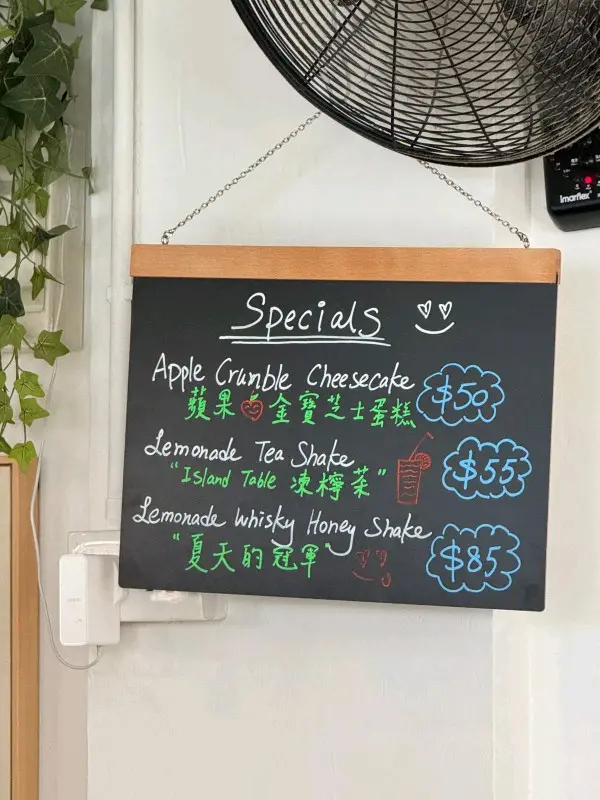 imarflex
Specials
Apple Crumble Cheesecake
蘋果金寶芝士蛋糕 $50
Lemonade Tea Shake
"Island Table 凍檸茶" $55
Lemonade Whisky Honey Shake
"夏天的冠軍" $85